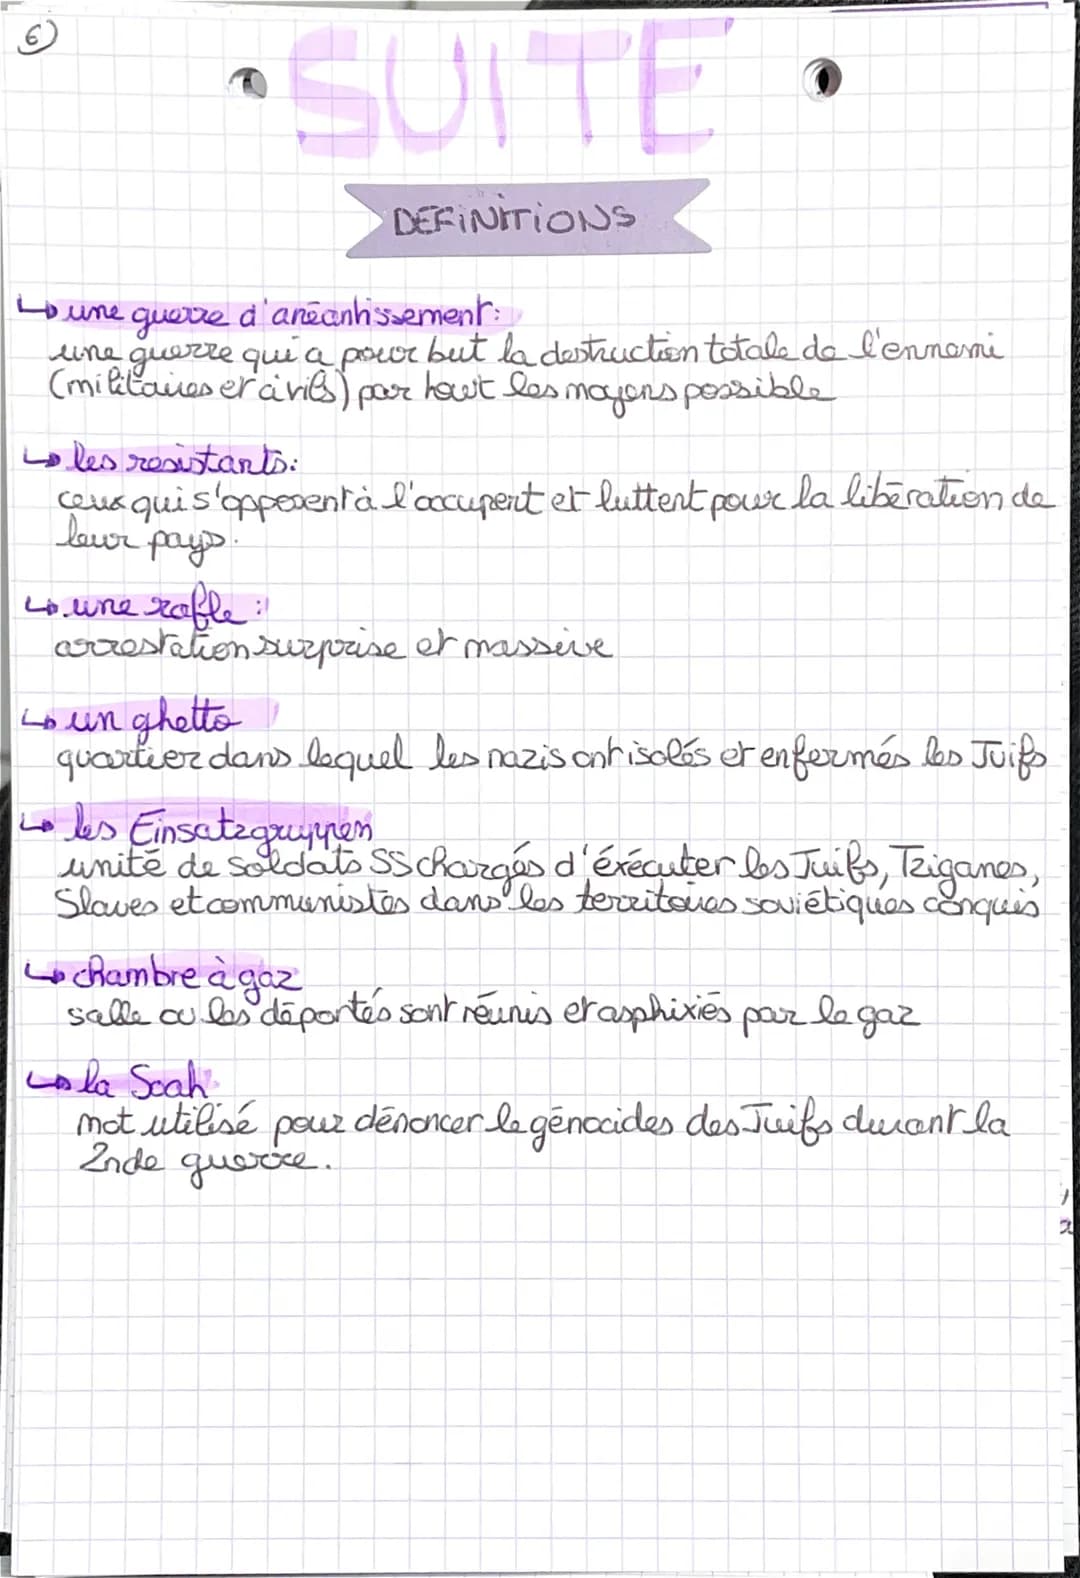 6
SUITE
DEFINITIONS
↳ une guerre d'anéantissement:
une guerre qui a pour but la destruction totale de l'ennemi
(militaires et civils) par tout les moyens possible
↳ les resistants:
ceux qui s'opposent à l'occupent et luttent pour la libération de
leur pays.
↳ une rafle :
arrestation surprise et massive
↳ un ghetto
quartier dans lequel les nazis ont isolés et enfermés les Juifs
↳ les Einsatzgruppen
unité de soldats SS chargés d'éxécuter les Juifs, Tziganes,
Slaves et communistes dans les territoires soviétiques conquis
↳ chambre à gaz
salle ou les déportés sont réunis et asphixiés par le gaz
↳ la Soah
mot utilisé pour dénoncer le génocides des Juifs durant la
2nde guerre.